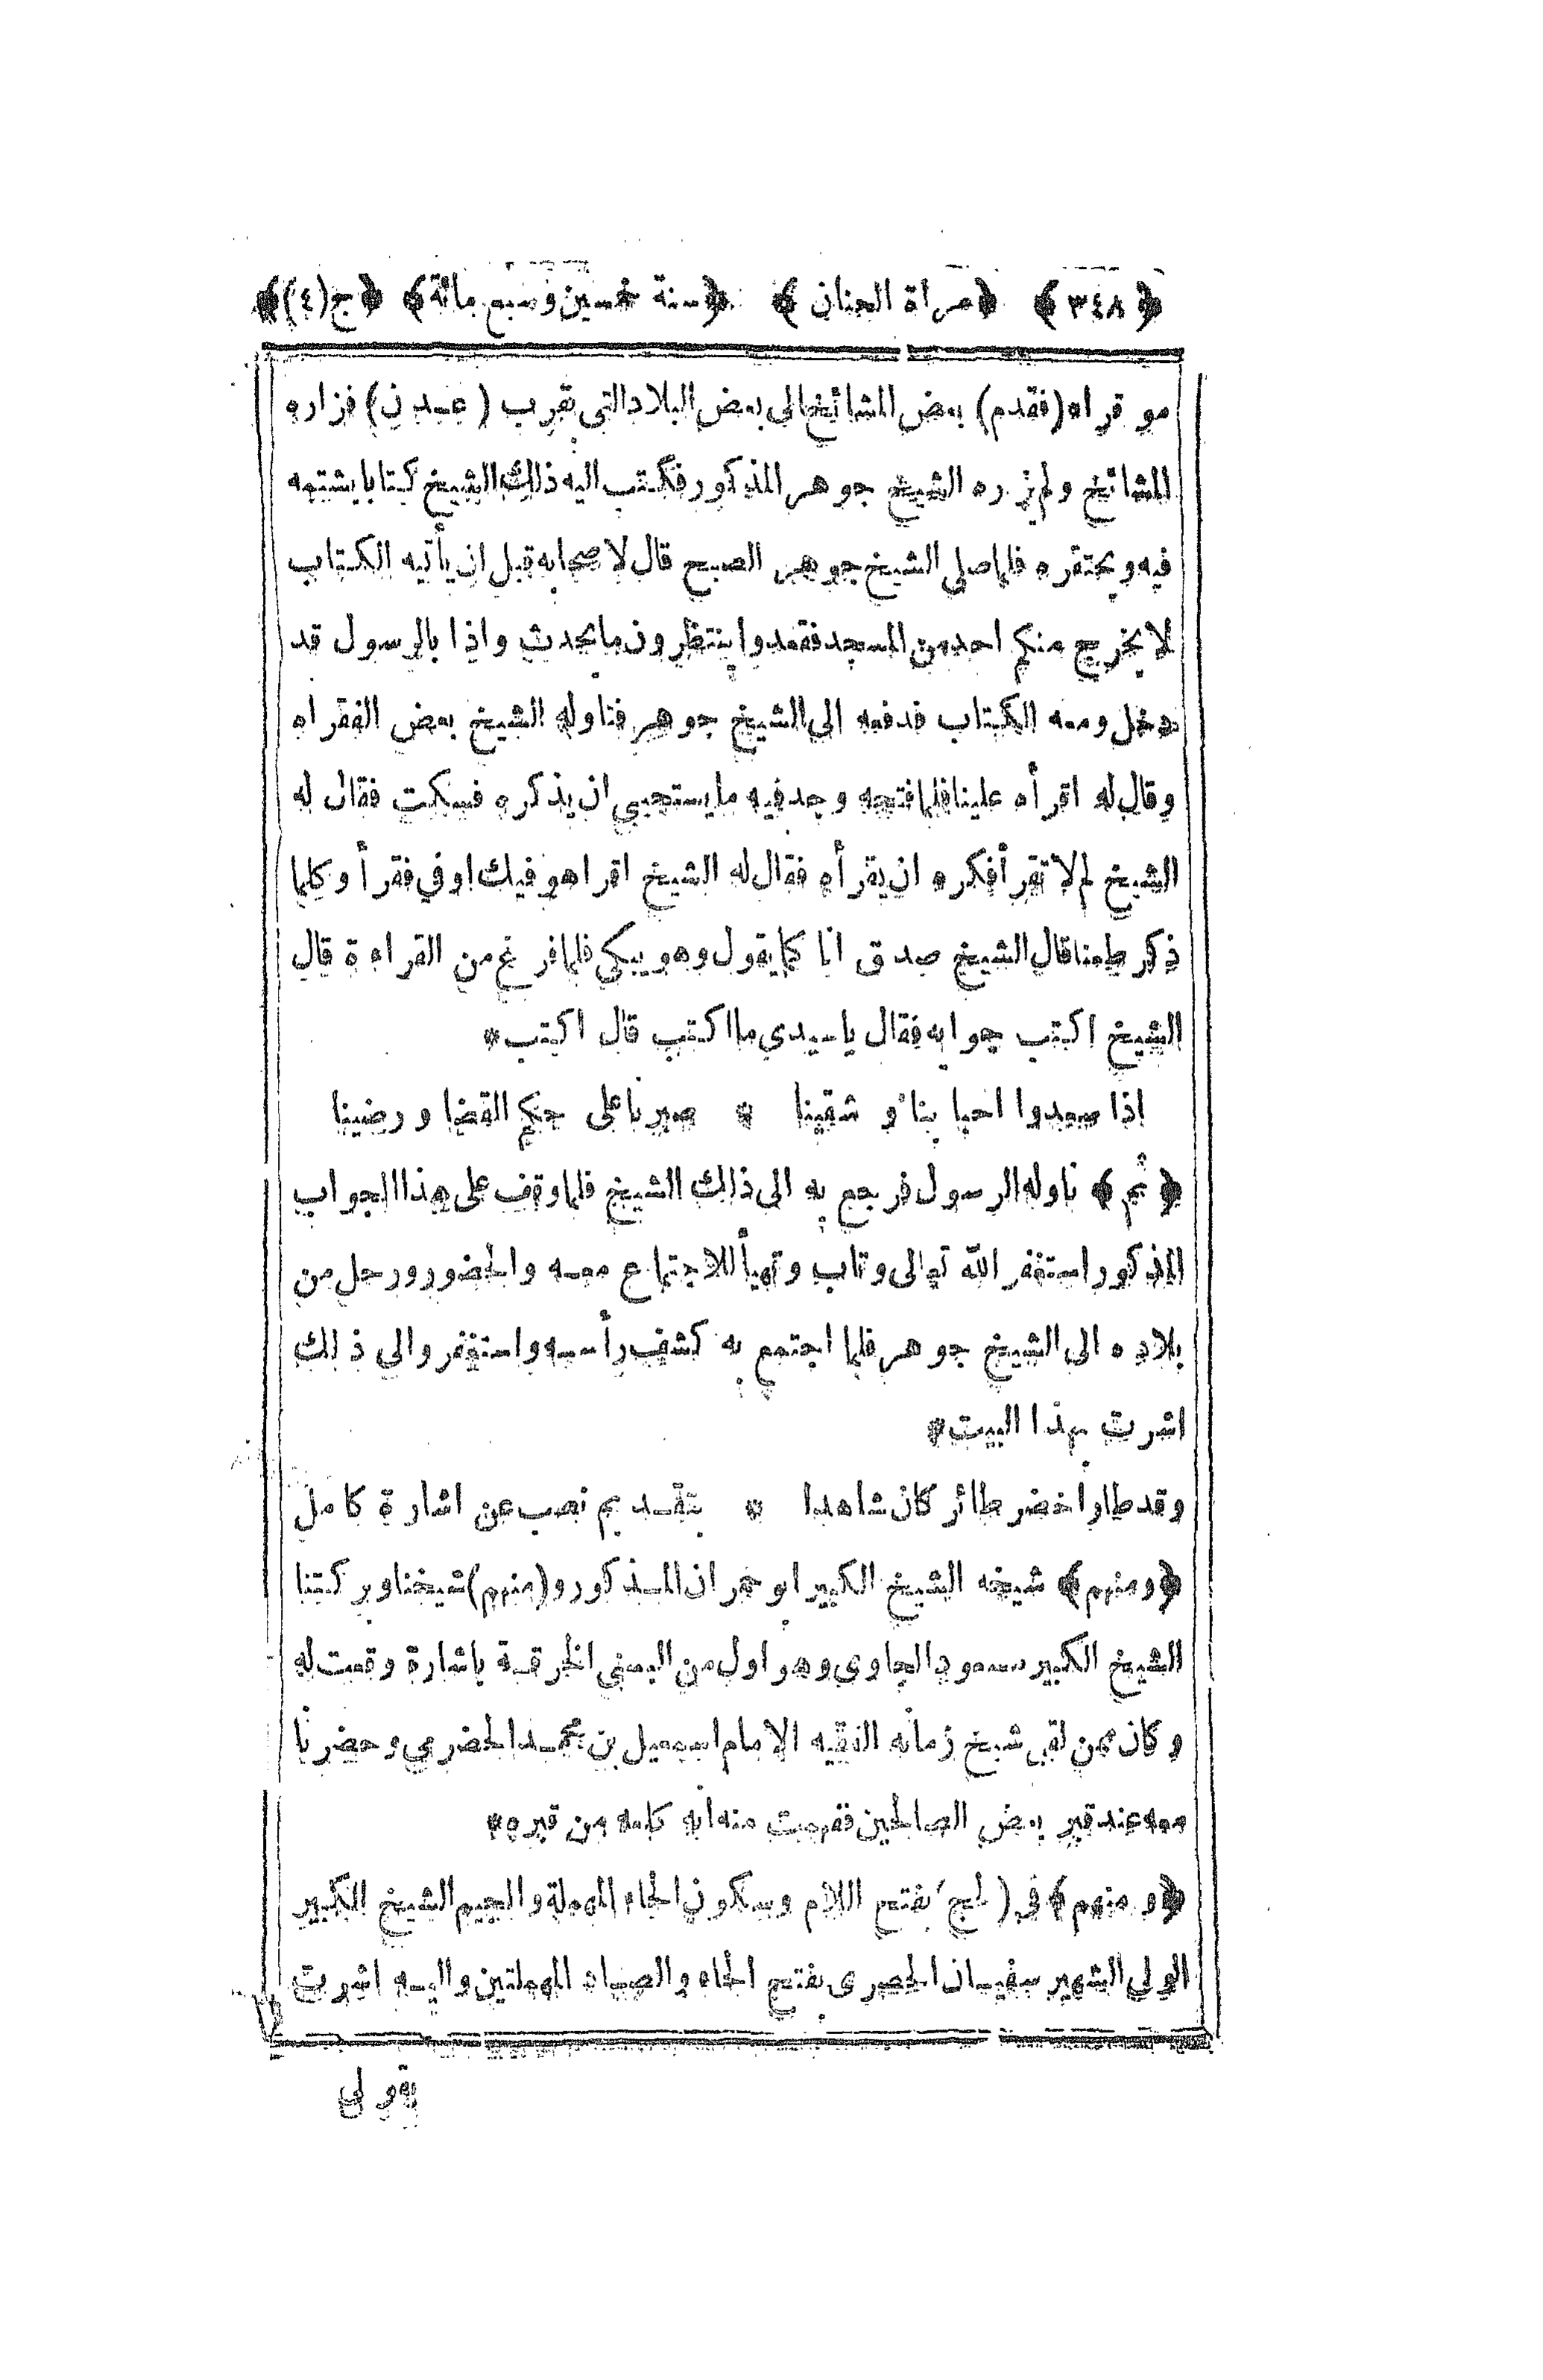 ﴿٣٤٨﴾ ﴿مراة الجنان﴾ ﴿سنة خمسين وسبع مائة﴾ ﴿ج(٤)﴾
مو قراه (فقدم) بعض المشائخ الى بعض البلاد التى بقرب (عدن) فزاره
المشائخ ولم يزره الشيخ جوهر المذكور فكتب اليه ذلك الشيخ كتابا يشتمه
فيه ويحتقره فلما صلى الشيخ جوهر الصبح قال لاصحابه قبل ان يأتيه الكتاب
لا يخرج منكم احد من المسجد فقعدوا ينتظرون ما يحدث واذا بالرسول قد
دخل ومعه الكتاب فدفعه الى الشيخ جوهر فناوله الشيخ بعض الفقراء
وقال له اقرأه علينا فلما فتحه وجد فيه ما يستحيي ان يذكره فسكت فقال له
الشيخ لم لا تقرأ فكره ان يقرأه فقال له الشيخ اقرا هو فيك او في فقرأ وكلما
ذكر طعنا قال الشيخ صدق انا كما يقول وهو يبكي فلما فرغ من القراءة قال
الشيخ اكتب جوابه فقال يا سيدي ما اكتب قال اكتب*
اذا سعدوا احبابنا و شقينا * صبرنا على حكم القضا ورضينا
﴿ثم﴾ ناوله الرسول فرجع به الى ذلك الشيخ فلما وقف على هذا الجواب
المذكور استغفر الله تعالى وتاب وتهيأ للاجتماع معه والحضور ورحل من
بلاده الى الشيخ جوهر فلما اجتمع به كشف رأسه واستغفر والى ذلك
اشرت بهذا البيت*
وقد طار اخضر طائر كان شاهدا * بتقديم نصب عن اشارة كامل
﴿ومنهم﴾ شيخه الشيخ الكبير ابو حمران المذكور و(منهم) شيخنا وبركتنا
الشيخ الكبير مسعود الجاوى وهو اول من البسنى الخرقة باشارة وقعت له
وكان ممن لقى شيخ زمانه الفقيه الامام اسمعيل بن محمد الحضرمي وحضرنا
معه عند قبر بعض الصالحين ففهمت منه انه كلمه من قبره*
﴿ومنهم﴾ فى (لحج) بفتح اللام وسكون الحاء المهملة والجيم الشيخ الكبير
الولى الشهير سفيان الحصرى بفتح الحاء والصاد المهملتين واليه اشرت
بقولى